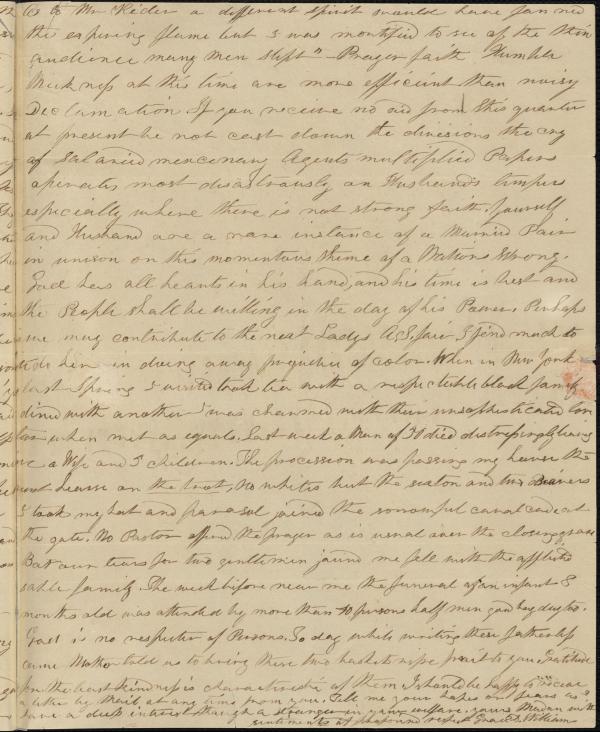 to Mr Rider a different spirit would have fanned
the expiring flame but I was mortified to see of the thin
audience many men slept" - Prayer faith Humble
Meekness at this time are more efficient than noisy
Declamation. If you receive no aid from this quarter
at present be not cast down the divisions the cry
of Salaried mercenary Agents multiplied Papers
operates most disastrously on Husbands tempers
especially where there is not strong faith. Yourself
and Husband are a rare instance of a Married Pair
in unison on this momentous theme of a Nations Wrong.
God has all hearts in his hand, and his time is best and
the People shall be willing in the day of his Power. Perhaps
we may contribute to the next Ladys A.S. fair I find much to
do here in doing away prejudice of color. When in New York
last Spring I visited took tea with a respectable black family
dined with another I was charmed with their unsophisticated
when met as equals. Last week a Man of 30 died distressingly leaving
a Wife and 5 children. The procession was passing my house the
hearse on the trot, No whites but the sexton and two Drivers
I took my hat and parasol joined the sorrowful cavalcade at
the gate. No Pastor offered the prayer as is usual over the closing grave
But our tears for two gentlemen joined me fell with the afflicted
sable family. The week before near me the funeral of an infant 8
months old was attended by more than 70 persons half men good
God is no respecter of Persons. To day while writing these fatherless
came Mother told us to bring these two baskets nice fruit to you. Gratitude
for the least kindness is characteristic of them. I should be happy to recieve
a letter by Mail at any time from you. Tell me your hopes or fears as I
have a deep interest though a stranger in your welfare. yours Madam with
sentiments of profound respect Grace Williams